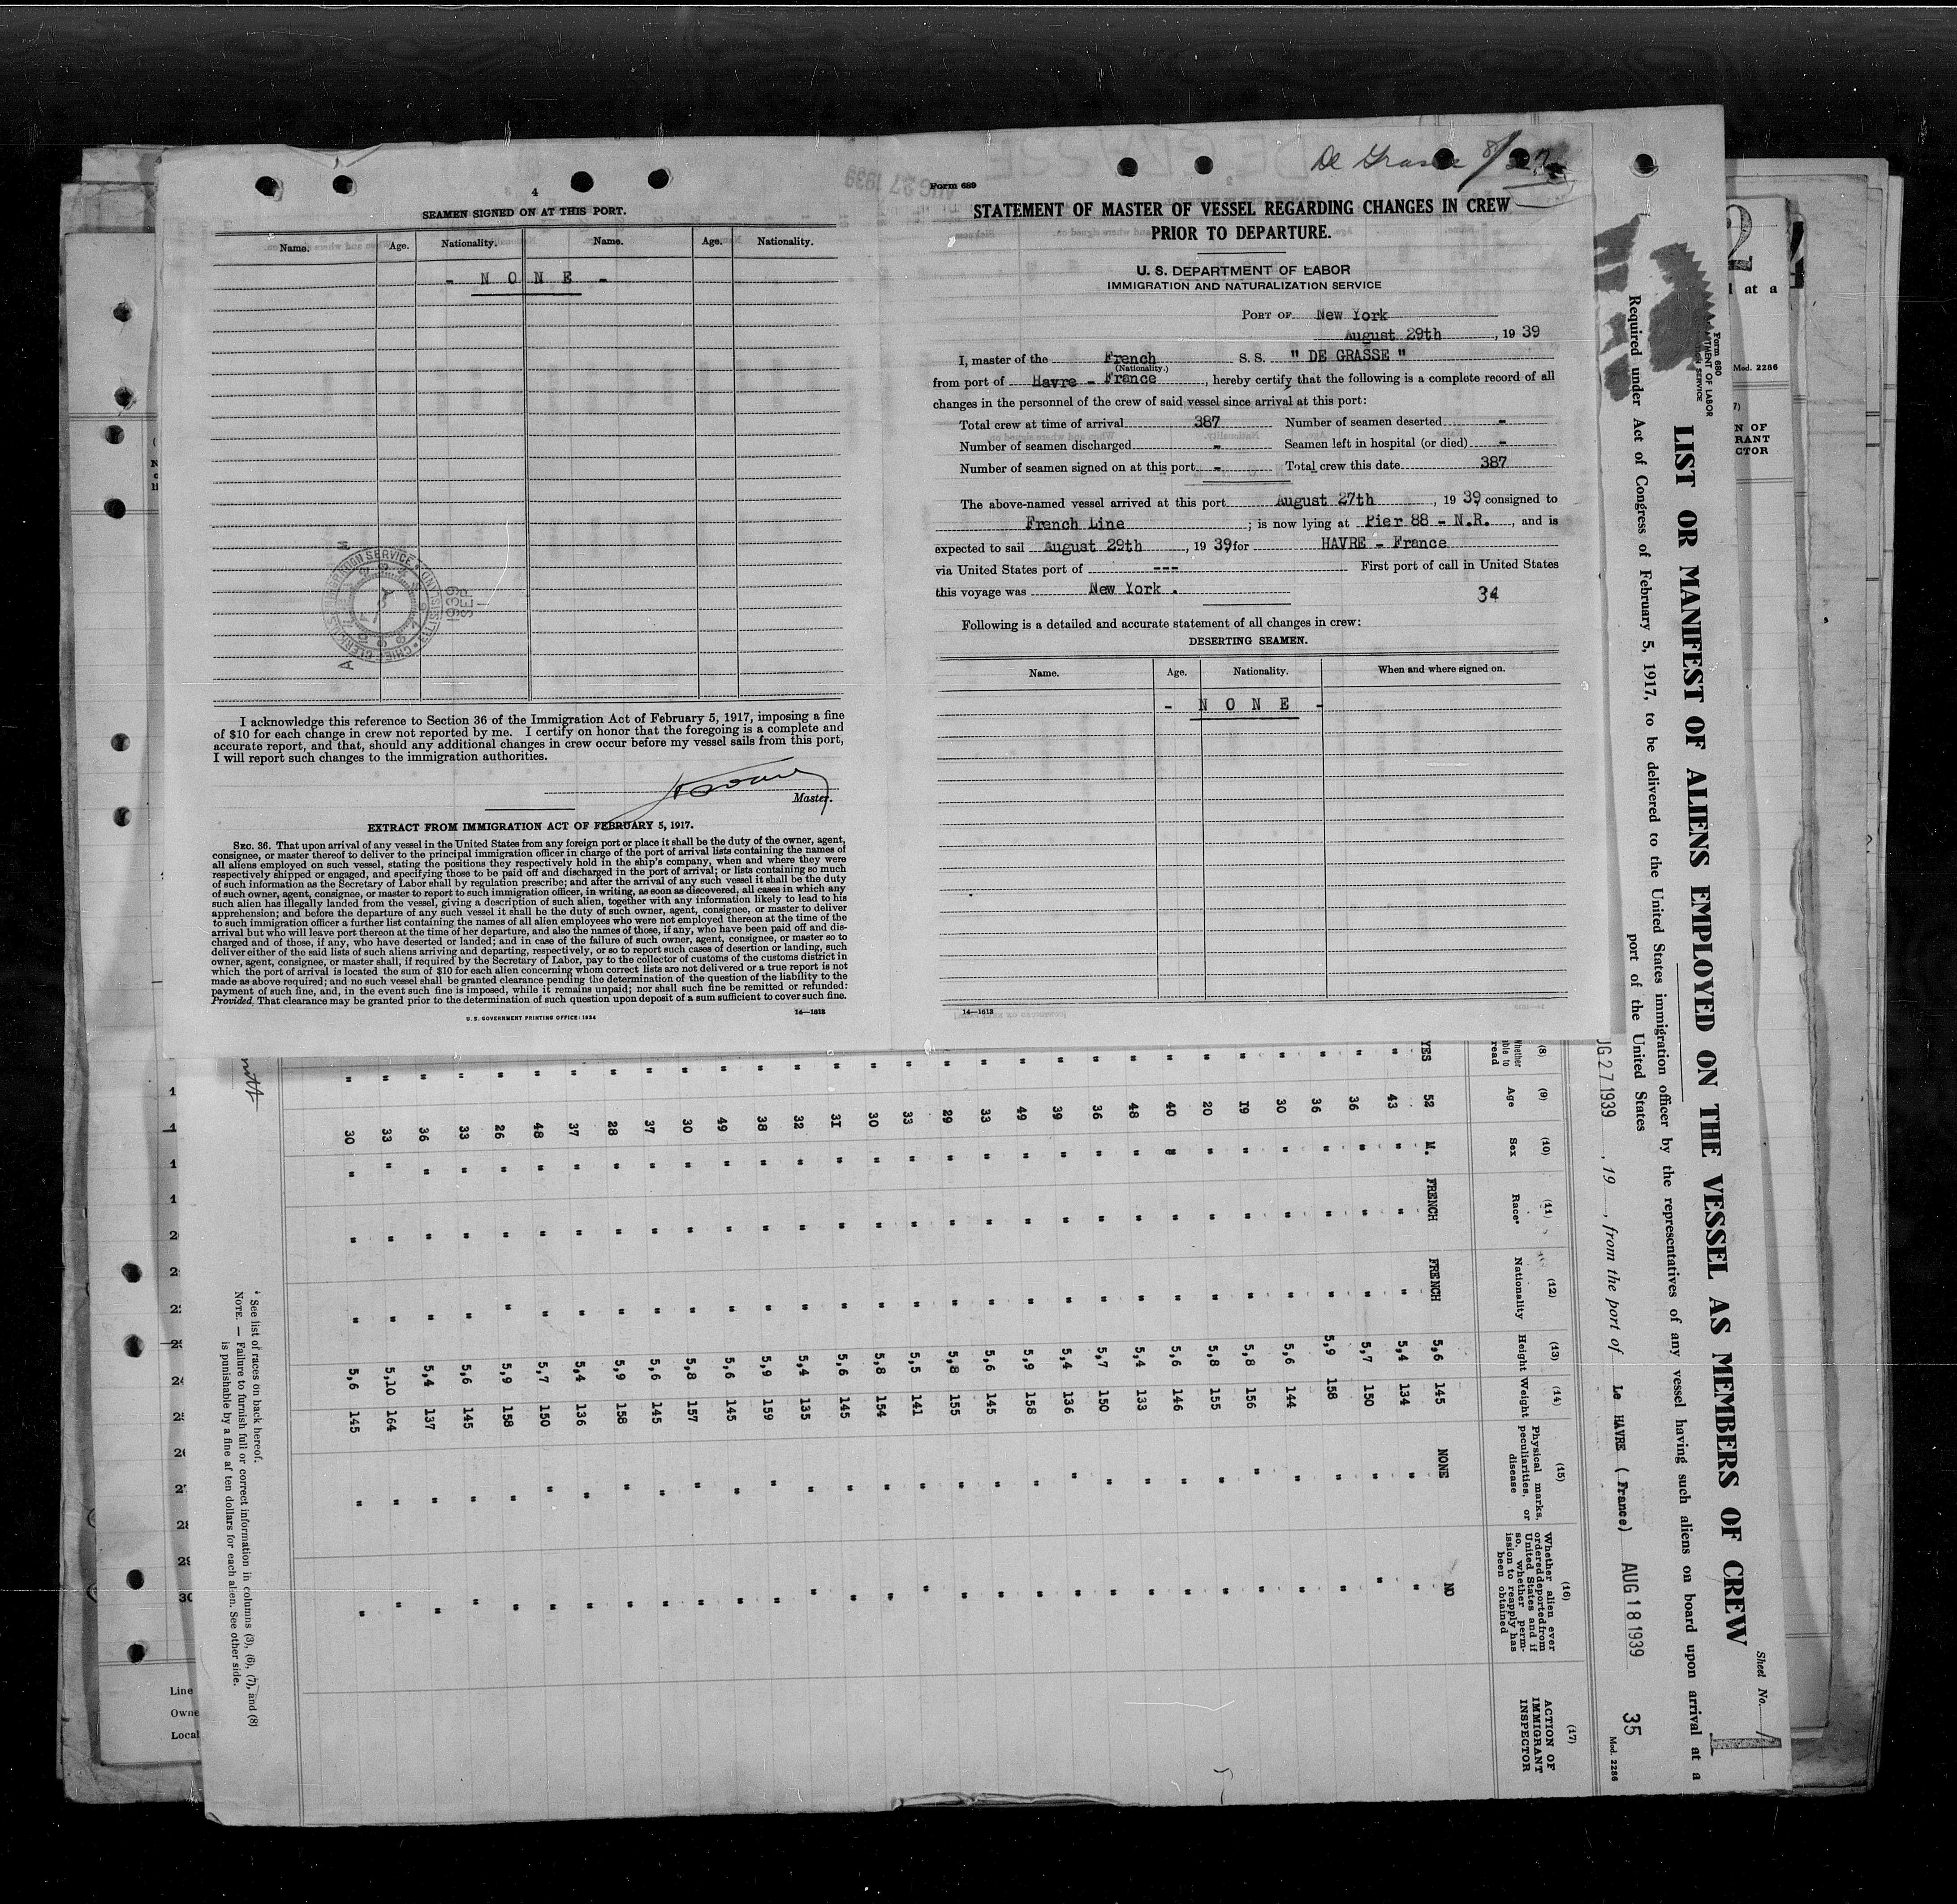 De Grasse 8/27
4
SEAMEN SIGNED ON AT THIS PORT.
Name. Age. Nationality. Name. Age. Nationality.
- N O N E -
I acknowledge this reference to Section 36 of the Immigration Act of February 5, 1917, imposing a fine
of $10 for each change in crew not reported by me. I certify on honor that the foregoing is a complete and
accurate report, and that, should any additional changes in crew occur before my vessel sails from this port,
I will report such changes to the immigration authorities.
Master.
EXTRACT FROM IMMIGRATION ACT OF FEBRUARY 5, 1917.
SEC. 36. That upon arrival of any vessel in the United States from any foreign port or place it shall be the duty of the owner, agent,
consignee, or master thereof to deliver to the principal immigration officer in charge of the port of arrival lists containing the names of
all aliens employed on such vessel, stating the positions they respectively hold in the ship's company, when and where they were
respectively shipped or engaged, and specifying those to be paid off and discharged in the port of arrival; or lists containing so much
of such information as the Secretary of Labor shall by regulation prescribe; and after the arrival of any such vessel it shall be the duty
of such owner, agent, consignee, or master to report to such immigration officer, in writing, as soon as discovered, all cases in which any
such alien has illegally landed from the vessel, giving a description of such alien, together with any information likely to lead to his
apprehension; and before the departure of any such vessel it shall be the duty of such owner, agent, consignee, or master to deliver
to such immigration officer a further list containing the names of all alien employees who were not employed thereon at the time of the
arrival but who will leave port thereon at the time of her departure, and also the names of those, if any, who have been paid off and dis-
charged and of those, if any, who have deserted or landed; and in case of the failure of such owner, agent, consignee, or master so to
deliver either of the said lists of such aliens arriving and departing, respectively, or so to report such cases of desertion or landing, such
owner, agent, consignee, or master shall, if required by the Secretary of Labor, pay to the collector of customs of the customs district in
which the port of arrival is located the sum of $10 for each alien concerning whom correct lists are not delivered or a true report is not
made as above required; and no such vessel shall be granted clearance pending the determination of the question of the liability to the
payment of such fine, and, in the event such fine is imposed, while it remains unpaid; nor shall such fine be remitted or refunded:
Provided, That clearance may be granted prior to the determination of such question upon deposit of a sum sufficient to cover such fine.
U. S. GOVERNMENT PRINTING OFFICE: 1934
14—1613
Form 689
STATEMENT OF MASTER OF VESSEL REGARDING CHANGES IN CREW
PRIOR TO DEPARTURE.
U. S. DEPARTMENT OF LABOR
IMMIGRATION AND NATURALIZATION SERVICE
PORT OF New York
August 29th, 1939
I, master of the French S. S. " DE GRASSE "
(Nationality.)
from port of Havre - France, hereby certify that the following is a complete record of all
changes in the personnel of the crew of said vessel since arrival at this port:
Total crew at time of arrival 387 Number of seamen deserted -
Number of seamen discharged - Seamen left in hospital (or died) -
Number of seamen signed on at this port - Total crew this date 387
The above-named vessel arrived at this port August 27th, 1939 consigned to
French Line; is now lying at Pier 88 - N.R., and is
expected to sail August 29th, 1939 for HAVRE - France
via United States port of --- First port of call in United States
this voyage was New York . 34
Following is a detailed and accurate statement of all changes in crew:
DESERTING SEAMEN.
Name. Age. Nationality. When and where signed on.
- N O N E -
14—1613
Sheet No. 1
LIST OR MANIFEST OF ALIENS EMPLOYED ON THE VESSEL AS MEMBERS OF CREW
Required under Act of Congress of February 5, 1917, to be delivered to the United States immigration officer by the representatives of any vessel having such aliens on board upon arrival at a
port of the United States
Form 680
UG 27 1939, 19 , from the port of Le HAVRE ( France) AUG 18 1939 35
Mod. 2286
(8) (9) (10) (11) (12) (13) (14) (15) (16) (17)
Age Sex Race* Nationality Height Weight
Physical marks, peculiarities, or disease
Whether alien ever ordered deported from United States and if so, whether permission to reapply has been obtained
ACTION OF IMMIGRANT INSPECTOR
YES 52 M. FRENCH FRENCH 5,6 145 NONE NO
" 43 " " " 5,4 134 " "
" 36 " " " 5,7 150 " "
" 36 " " " 5,9 158 " "
" 30 " " " 5,6 144 " "
" 19 " " " 5,8 156 " "
" 20 " " " 5,8 155 " "
" 40 " " " 5,6 146 " "
" 48 " " " 5,4 133 " "
" 36 " " " 5,7 150 " "
" 39 " " " 5,4 136 " "
" 49 " " " 5,9 158 " "
" 33 " " " 5,6 145 " "
" 29 " " " 5,8 155 " "
" 33 " " " 5,5 141 " "
" 30 " " " 5,8 154 " "
" 31 " " " 5,6 145 " "
" 32 " " " 5,4 135 " "
" 38 " " " 5,9 159 " "
" 49 " " " 5,6 145 " "
" 30 " " " 5,8 157 " "
" 37 " " " 5,6 145 " "
" 28 " " " 5,9 158 " "
" 37 " " " 5,4 136 " "
" 48 " " " 5,7 150 " "
" 26 " " " 5,9 158 " "
" 33 " " " 5,6 145 " "
" 36 " " " 5,4 137 " "
" 33 " " " 5,10 164 " "
" 30 " " " 5,6 145 " "
* See list of races on back hereof.
NOTE. — Failure to furnish full or correct information in columns (3), (6), (7), and (8)
is punishable by a fine af ten dollars for each alien. See other side.
2
at a
Mod. 2286
Line
Owne
Local
28
29
30